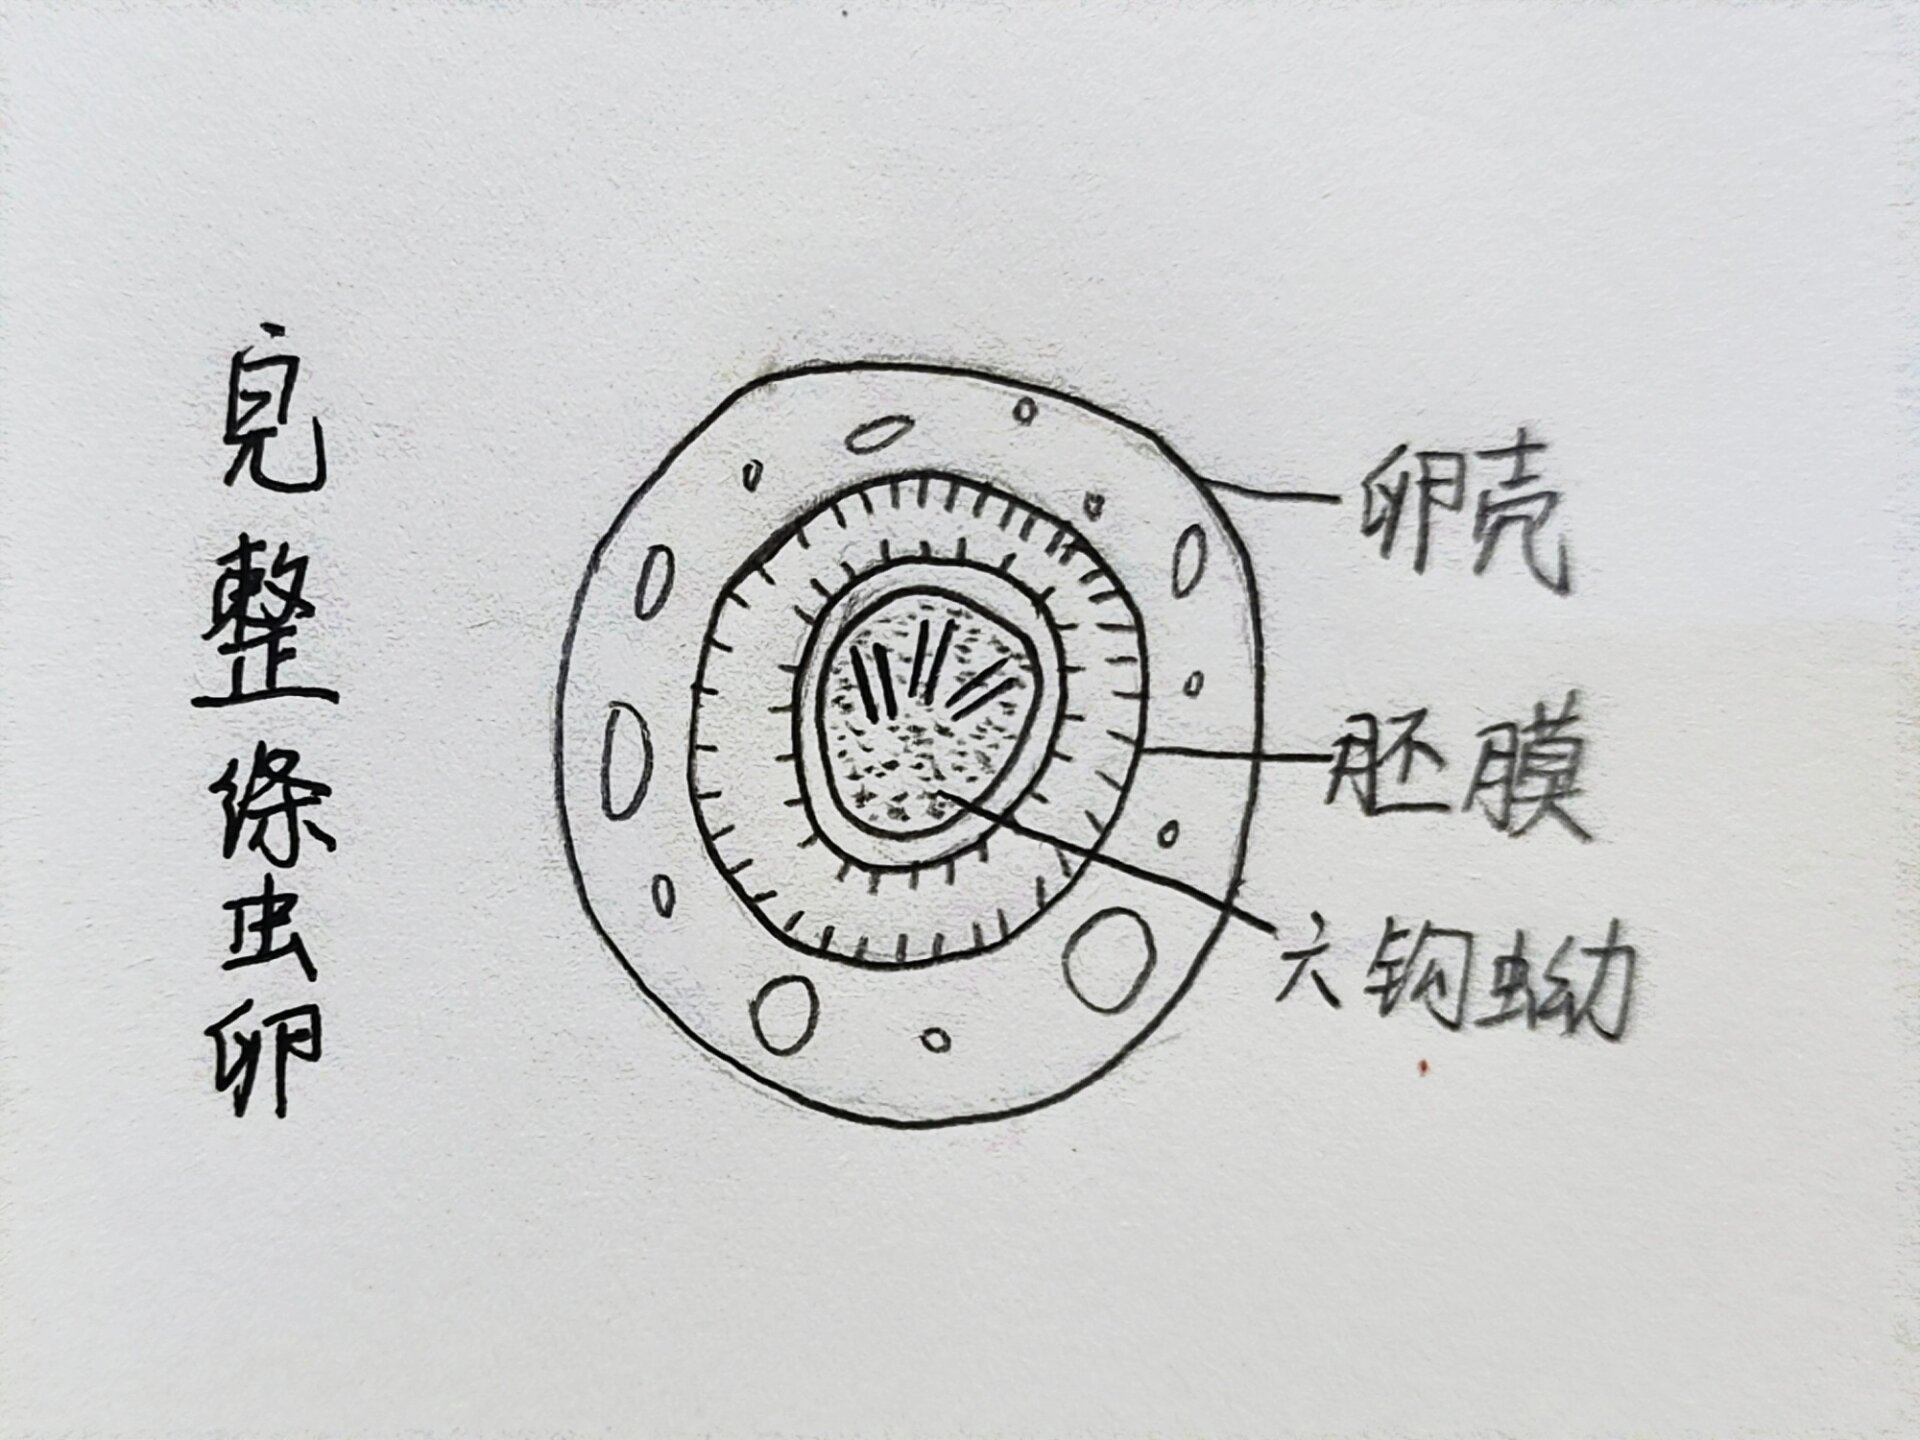 完整绦虫卵
卵壳
胚膜
六钩蚴